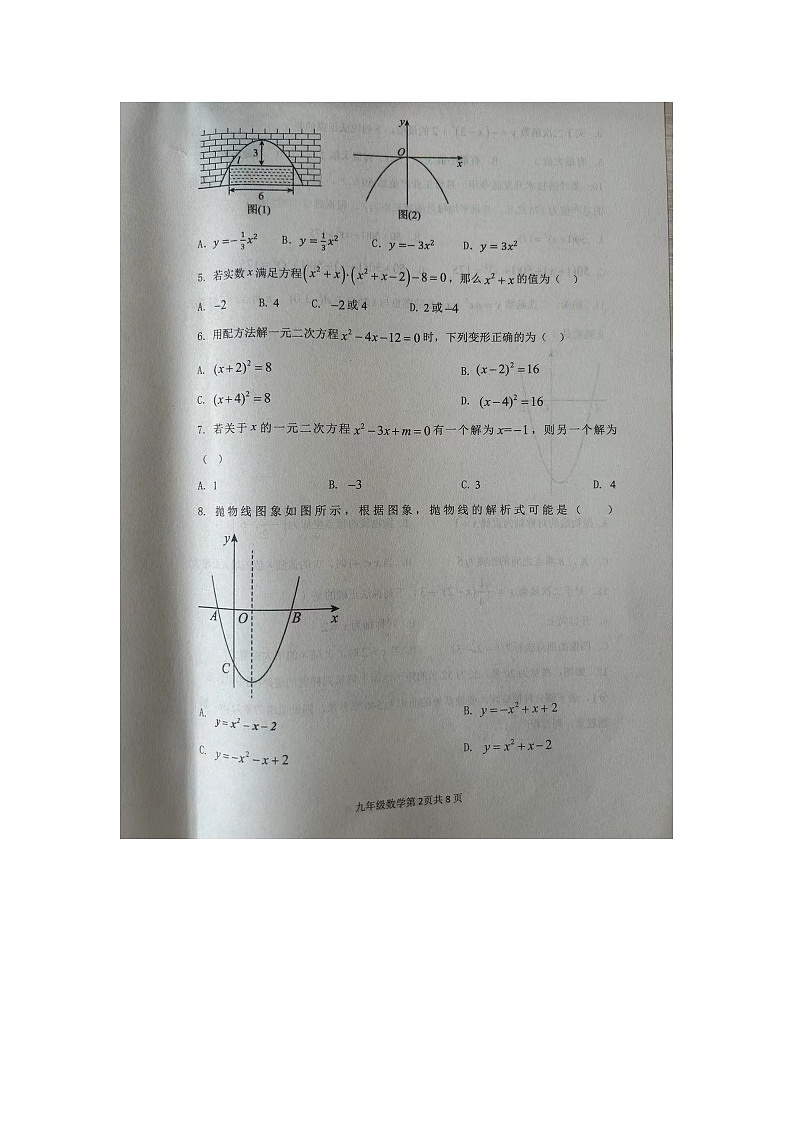 y
3
l
O
x
6
图(1)
图(2)
A. y=-\frac{1}{3}x² B. y=\frac{1}{3}x² C. y=-3x² D. y=3x²
5. 若实数x满足方程(x²+x)·(x²+x-2)-8=0，那么x²+x的值为（ ）
A. -2 B. 4 C. -2或4 D. 2或-4
6. 用配方法解一元二次方程x²-4x-12=0时，下列变形正确的为（ ）
A. (x+2)²=8 B. (x-2)²=16
C. (x+4)²=8 D. (x-4)²=16
7. 若关于x的一元二次方程x²-3x+m=0有一个解为x=-1，则另一个解为
（ ）
A. 1 B. -3 C. 3 D. 4
8. 抛物线图象如图所示，根据图象，抛物线的解析式可能是（ ）
y
A O B x
C
A. y=x²-x-2 B. y=-x²+x+2
C. y=-x²-x+2 D. y=x²+x-2
九年级数学第2页共8页